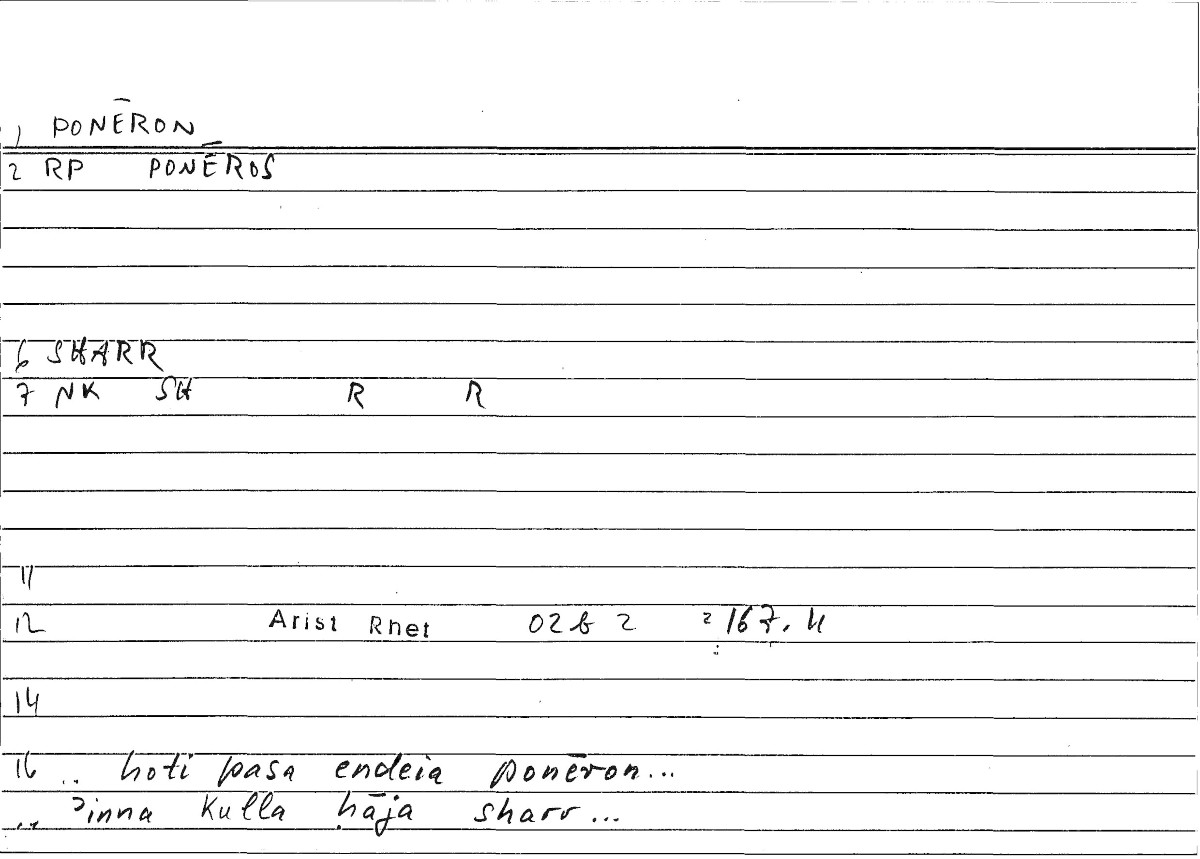 1 PONĒRON
2 RP PONĒROS
6 SHARR
7 NK SH R R
11
12 Arist Rhet 02b 2 167.4
14
16 .. hoti pasa endeia ponēron...
.. ʾinna kulla ḥāja sharr...